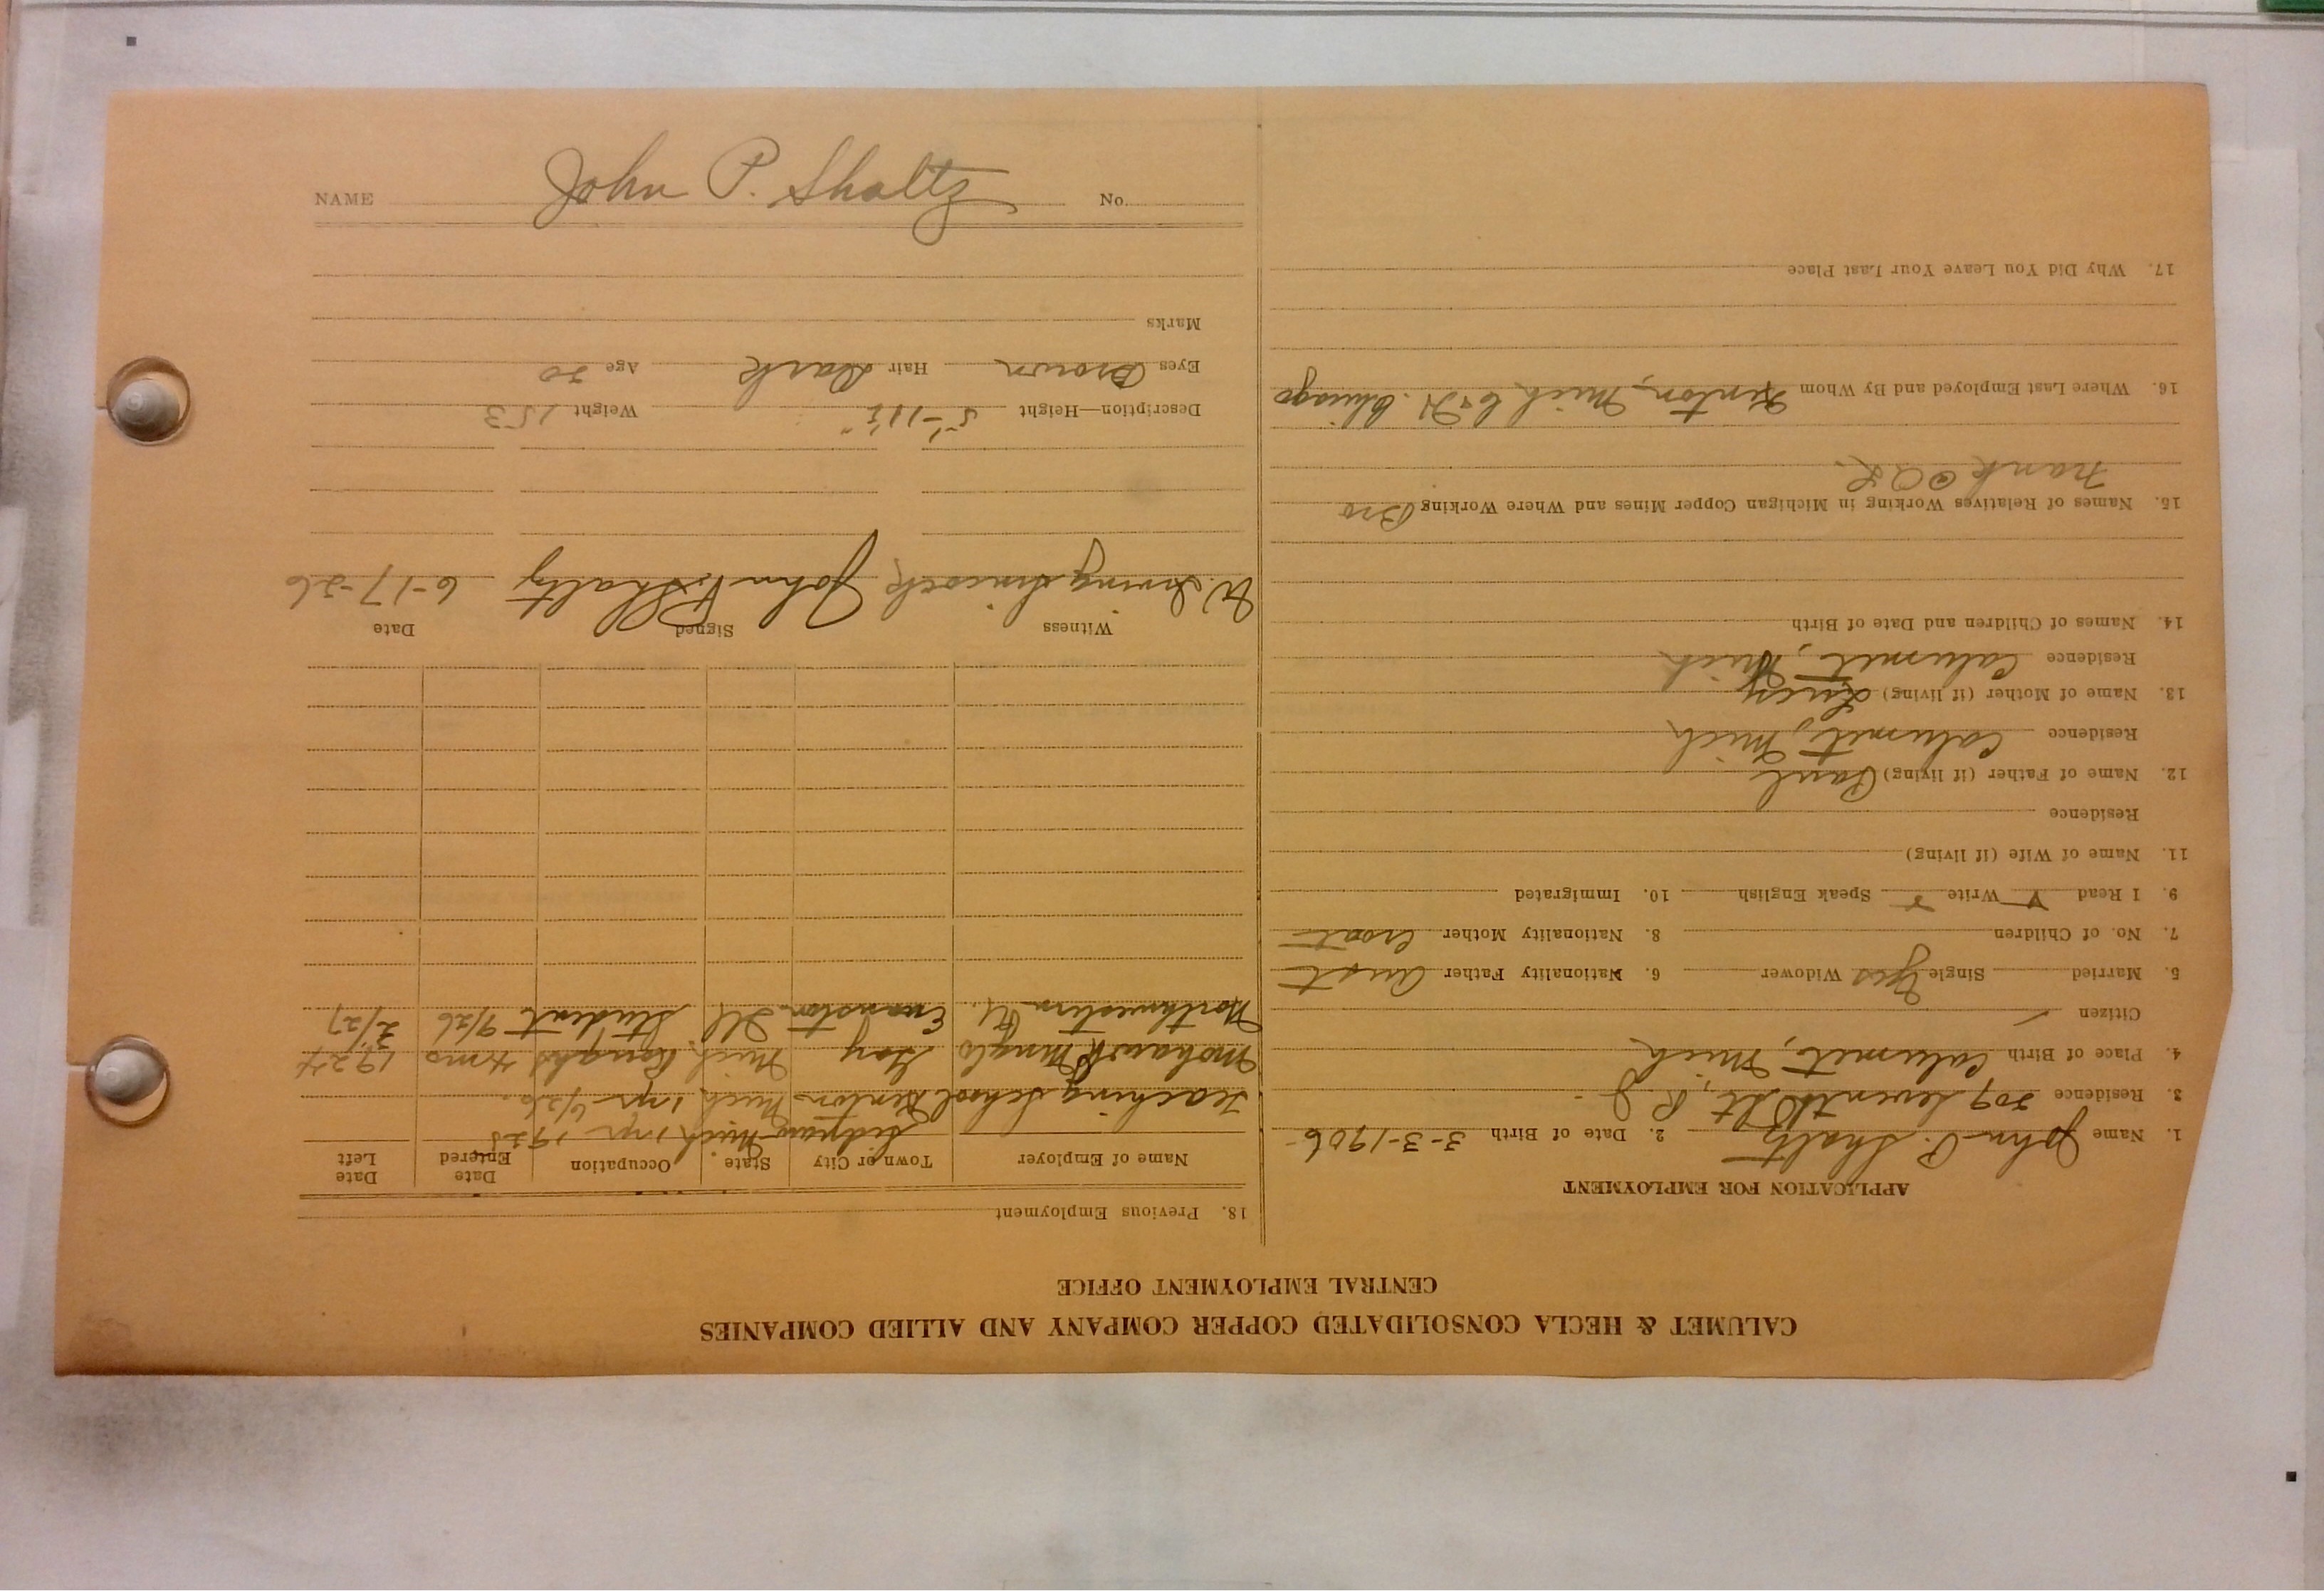 CALUMET & HECLA CONSOLIDATED COPPER COMPANY AND ALLIED COMPANIES
CENTRAL EMPLOYMENT OFFICE
APPLICATION FOR EMPLOYMENT
1. Name John P. Shaltz 2. Date of Birth 3-3-1906
3. Residence 309 Seventh St, R. J.
4. Place of Birth Calumet, Mich
Citizen
5. Married Single Yes Widower 6. Nationality Father Aust
7. No. of Children 8. Nationality Mother Croat
9. I Read Write Speak English 10. Immigrated
11. Name of Wife (if living)
Residence
12. Name of Father (if living) Paul
Residence Calumet, Mich
13. Name of Mother (if living) Lucy
Residence Calumet, Mich
14. Names of Children and Date of Birth
15. Names of Relatives Working in Michigan Copper Mines and Where Working Bro
Frank @
16. Where Last Employed and By Whom Kenton, Mich Chicago
17. Why Did You Leave Your Last Place
18. Previous Employment
Name of Employer Town or City State Occupation Date Entered Date Left
Mich 1 yr 1925
Teaching School Kenton Mich 1 yr 6/26.
Mohawk Gay Mich 4 mo 1924
Northwestern U. Evanston Ill Student 9/26 2/27
Witness Signed Date
W. Irving Simcock John P. Shaltz 6-17-26
Description—Height 5'-11½" Weight 153
Eyes Brown Hair Dark Age 20
Marks
NAME John P. Shaltz No.